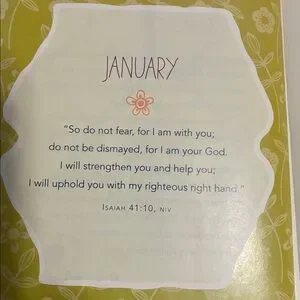 JANUARY
"So do not fear, for I am with you;
do not be dismayed, for I am your God.
I will strengthen you and help you;
I will uphold you with my righteous right hand."
ISAIAH 41:10, NIV